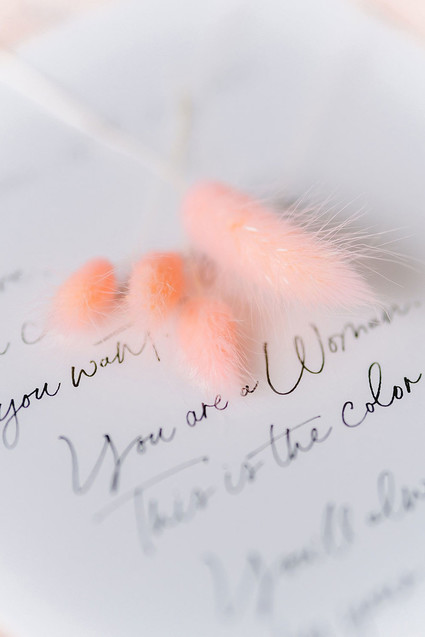 you want
You are a Woman.
This is the color
You'll